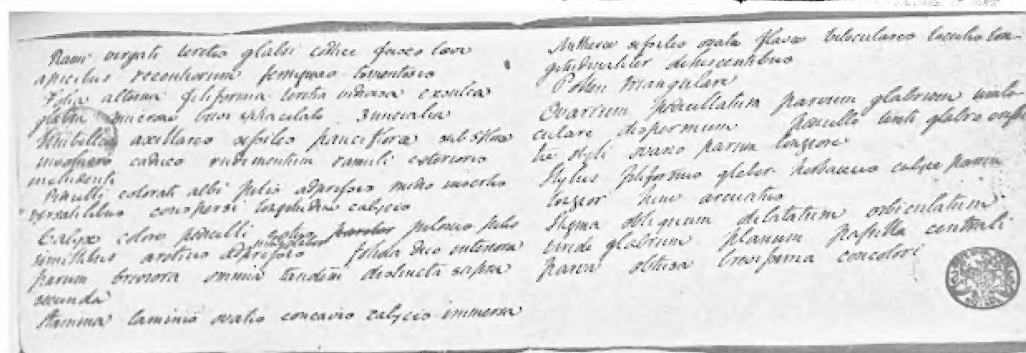 Rami virgati teretes glabri cortice fusco laevi
apicibus recentiorum ferrugineo-tomentosis
Folia alterna filiformia teretia exsulca
glabra mucrone brevi sphacelato 3uncialia
Umbellae axillares sessiles pauciflorae
involucro caduco rudimentum ramuli exterioris
includenti
Pedicelli colorati albi pilis adpressis medio insertis
versatilibus conspersi longitudine calycis
Calyx colore pedicelli pilosus pilis
similibus arctius adpressis foliola duo interiora
parum breviora omnia tandem distincta supra
secunda
Stamina laminis ovatis concavis calycis immersa
Antherae sessiles ovatae flavae biloculares loculis lon-
gitudinaliter dehiscentibus
Pollen triangulare
Ovarium pedicellatum parvum glabrum unilo-
culare dispermum pedicello tereti glabro
styli ovario parum longiore
Stylus filiformis glaber herbaceus calyce parum
longior hinc arcuatus
Stigma obliquum dilatatum orbiculatum
viride glabrum planum papilla centrali
parva obtusa breviss concolori